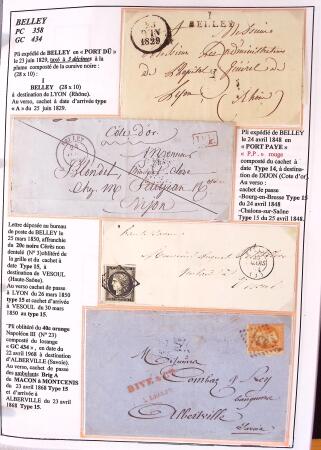 BELLEY
PC 358
GC 434
Pli expédié de BELLEY en « PORT DÛ »
le 23 juin 1829, taxé à 3 décimes à la
plume composté de la cursive noire :
(28 x 10)
1
BELLEY (28 x 10)
à destination de LYON (Rhône).
Au verso, cachet à date d'arrivée type
« A » du 25 juin 1829.
1
BELLEY
JUIN
1829
A Messieurs
Messieurs les administrateurs
de l'hôpital Général de
Lyon
Rhône
Pli expédié de BELLEY
le 24 avril 1848 en
« PORT PAYE »
« P.P. » rouge
composté du cachet à
date Type 14, à destination
de DIJON (Cote d'or)
Au verso :
cachet de passage
-Bourg-en-Bresse Type 15
du 24 avril 1848
-Chalons-sur-Saône
Type 15 du 25 avril 1848.
BELLEY
Côte d'Or
Monsieur
Dijon
Lettre déposée au bureau
de poste de BELLEY le
25 mars 1850, affranchie
du 20c noire Cérès non
dentelé (N°3) oblitéré de
la grille et du cachet à
date Type 15, à
destination de VESOUL
(Haute-Saône).
Au verso cachet de passé
à LYON du 26 mars 1850
type 15 et cachet d'arrivée
à VESOUL du 30 mars
1850 au type 15.
MARS
Monsieur
Vesoul
Pli oblitéré du 40c orange
Napoléon III (N° 23)
composté du losange
« GC 434 », en date du
22 avril 1968 à destination
d'ALBERVILLE (Savoie).
Au verso, cachet de passe
des ambulants Brig A
de MACON à MONTCENIS
du 23 avril 1868 Type 15
et d'arrivée à
ALBERVILLE du 23 avril
1868 Type 15.
Messieurs
Combaz & Rey
banquiers
Albertville
Savoie